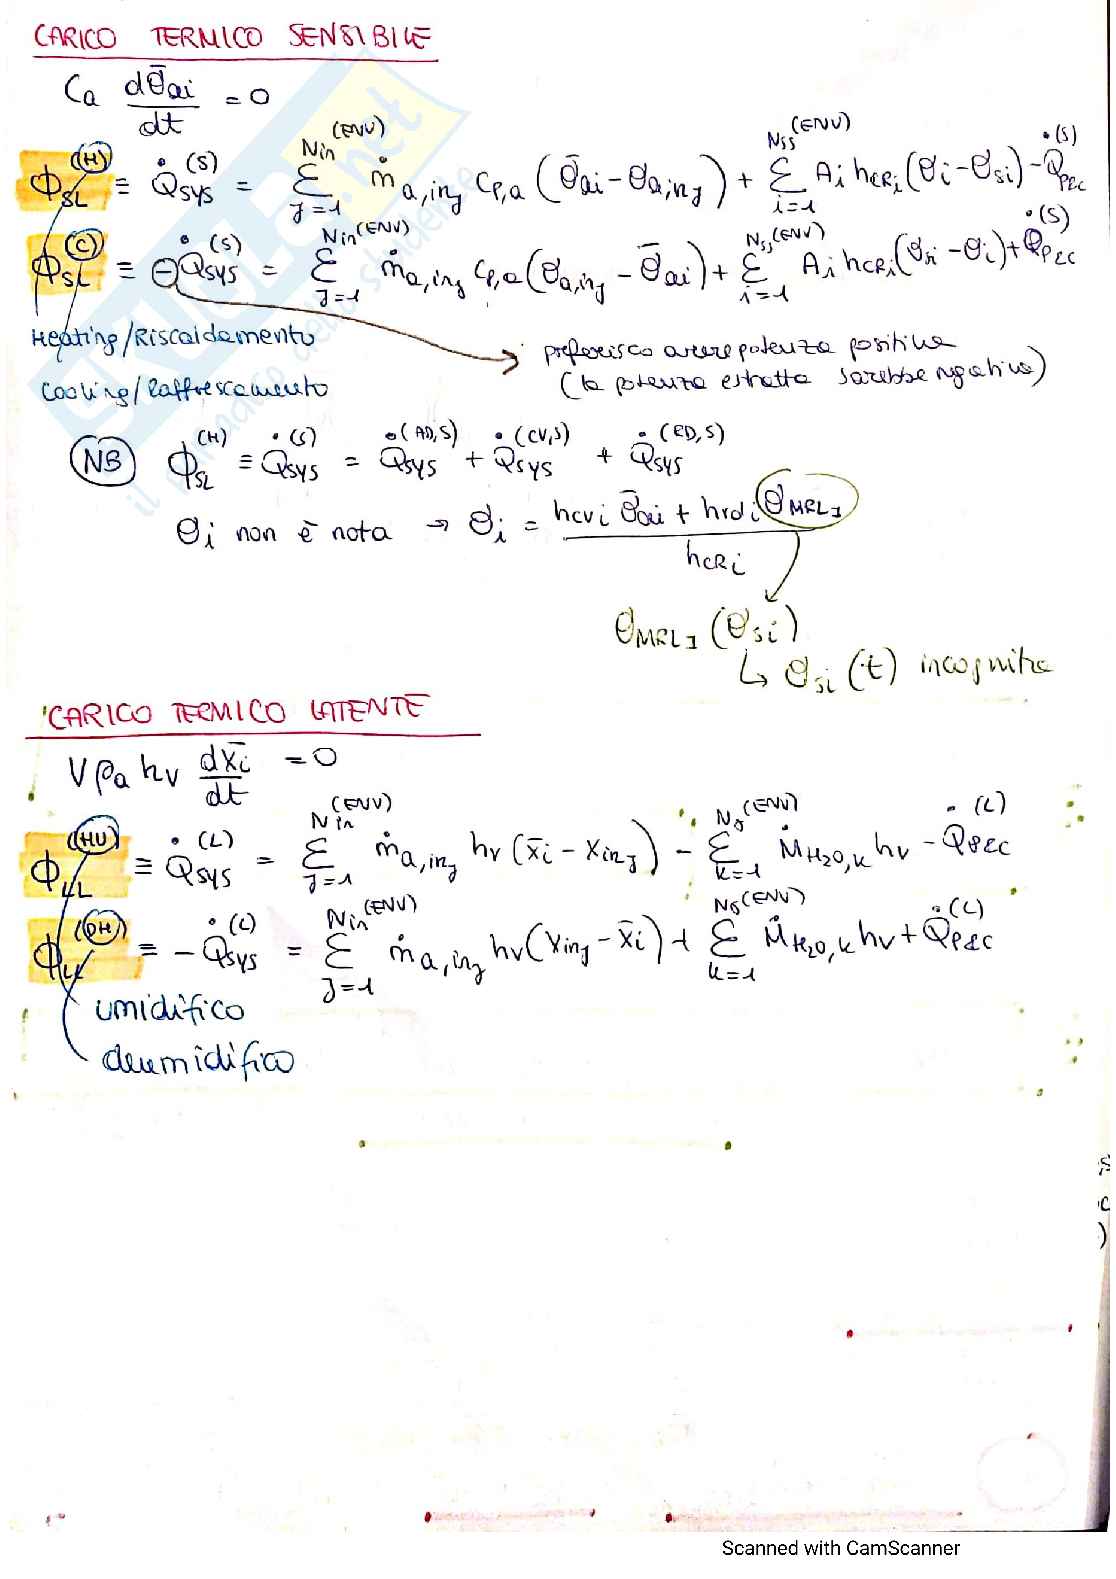 CARICO TERMICO SENSIBILE
Ca dθ̄ai/dt = 0
Φ_SL^(H) ≡ Q̇_SYS^(S) = Σ_{J=1}^{Nin^(ENV)} ṁ_a,inJ Cp,a (θ̄ai - θa,inJ) + Σ_{i=1}^{Nss^(ENV)} Ai hCRi (θi - θsi) - Q̇_PEC^(S)
Φ_SL^(C) ≡ -Q̇_SYS^(S) = Σ_{J=1}^{Nin^(ENV)} ṁ_a,inJ Cp,a (θa,inJ - θ̄ai) + Σ_{i=1}^{Nss^(ENV)} Ai hCRi (θsi - θi) + Q̇_PEC^(S)
Heating/Riscaldamento
preferisco avere potenza positiva
Cooling/Raffrescamento
(la potenza estratta sarebbe negativa)
NB Φ_SL^(H) ≡ Q̇_SYS^(S) = Q̇_SYS^(AD,S) + Q̇_SYS^(CV,S) + Q̇_SYS^(RD,S)
θi non è nota → θi = (hcvi θ̄ai + hrdi θMRLJ) / hCRi
θMRLJ (θsi)
↳ θsi (t) incognite
CARICO TERMICO LATENTE
V ρa hv dx̄i/dt = 0
Φ_LL^(HU) ≡ Q̇_SYS^(L) = Σ_{J=1}^{Nin^(ENV)} ṁ_a,inJ hv (x̄i - xinJ) - Σ_{k=1}^{Ng^(ENV)} Ṁ_H2O,k hv - Q̇_PEC^(L)
Φ_LL^(DH) ≡ -Q̇_SYS^(L) = Σ_{J=1}^{Nin^(ENV)} ṁ_a,inJ hv (xinJ - x̄i) + Σ_{k=1}^{Ng^(ENV)} Ṁ_H2O,k hv + Q̇_PEC^(L)
umidifico
deumidifico
Scanned with CamScanner